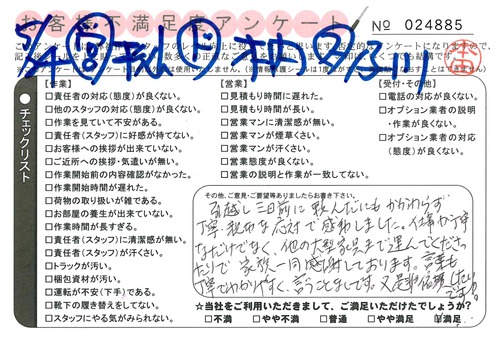 お客様不満足度アンケート
No 024885
チェックリスト
【作業】
□責任者の対応(態度)が良くない。
□他のスタッフの対応(態度)が良くない。
□作業を見ていて不安がある。
□責任者(スタッフ)に好感が持てない。
□お客様への挨拶が出来ていない。
□ご近所への挨拶・気遣いが無い。
□作業開始前の内容確認がなかった。
□作業開始時間が遅れた。
□荷物の取り扱いが雑である。
□お部屋の養生が出来ていない。
□作業時間が長すぎる。
□責任者(スタッフ)に清潔感が無い。
□責任者(スタッフ)が汗くさい。
□トラックが汚い。
□梱包資材が汚い。
□運転が不安(下手)である。
□靴下の履き替えをしてない。
□スタッフにやる気がみられない。
【営業】
□見積もり時間に遅れた。
□見積もり時間が長い。
□営業マンに清潔感が無い。
□営業マンが煙草くさい。
□営業マンが汗くさい。
□営業態度が良くない。
□営業の説明と作業が一致してない。
【受付・その他】
□電話の対応が良くない。
□オプション業者の説明
・作業が良くない。
□オプション業者の対応
(態度)が良くない。
その他、ご意見・ご要望等ありましたらお書き下さい。
引越し三日前に頼んだにもかかわらず
丁寧、親切な対応で感動しました。仕事が丁寧
なだけでなく、他の大型家具まで運んでくださっ
たりで家族一同感謝しております。言葉も
丁寧でわかりやすく、言うことなしです。又是非依頼したい
です!
☆当社をご利用いただきまして、ご満足いただけたでしょうか?
□不満 □やや不満 □普通 □やや満足 □満足